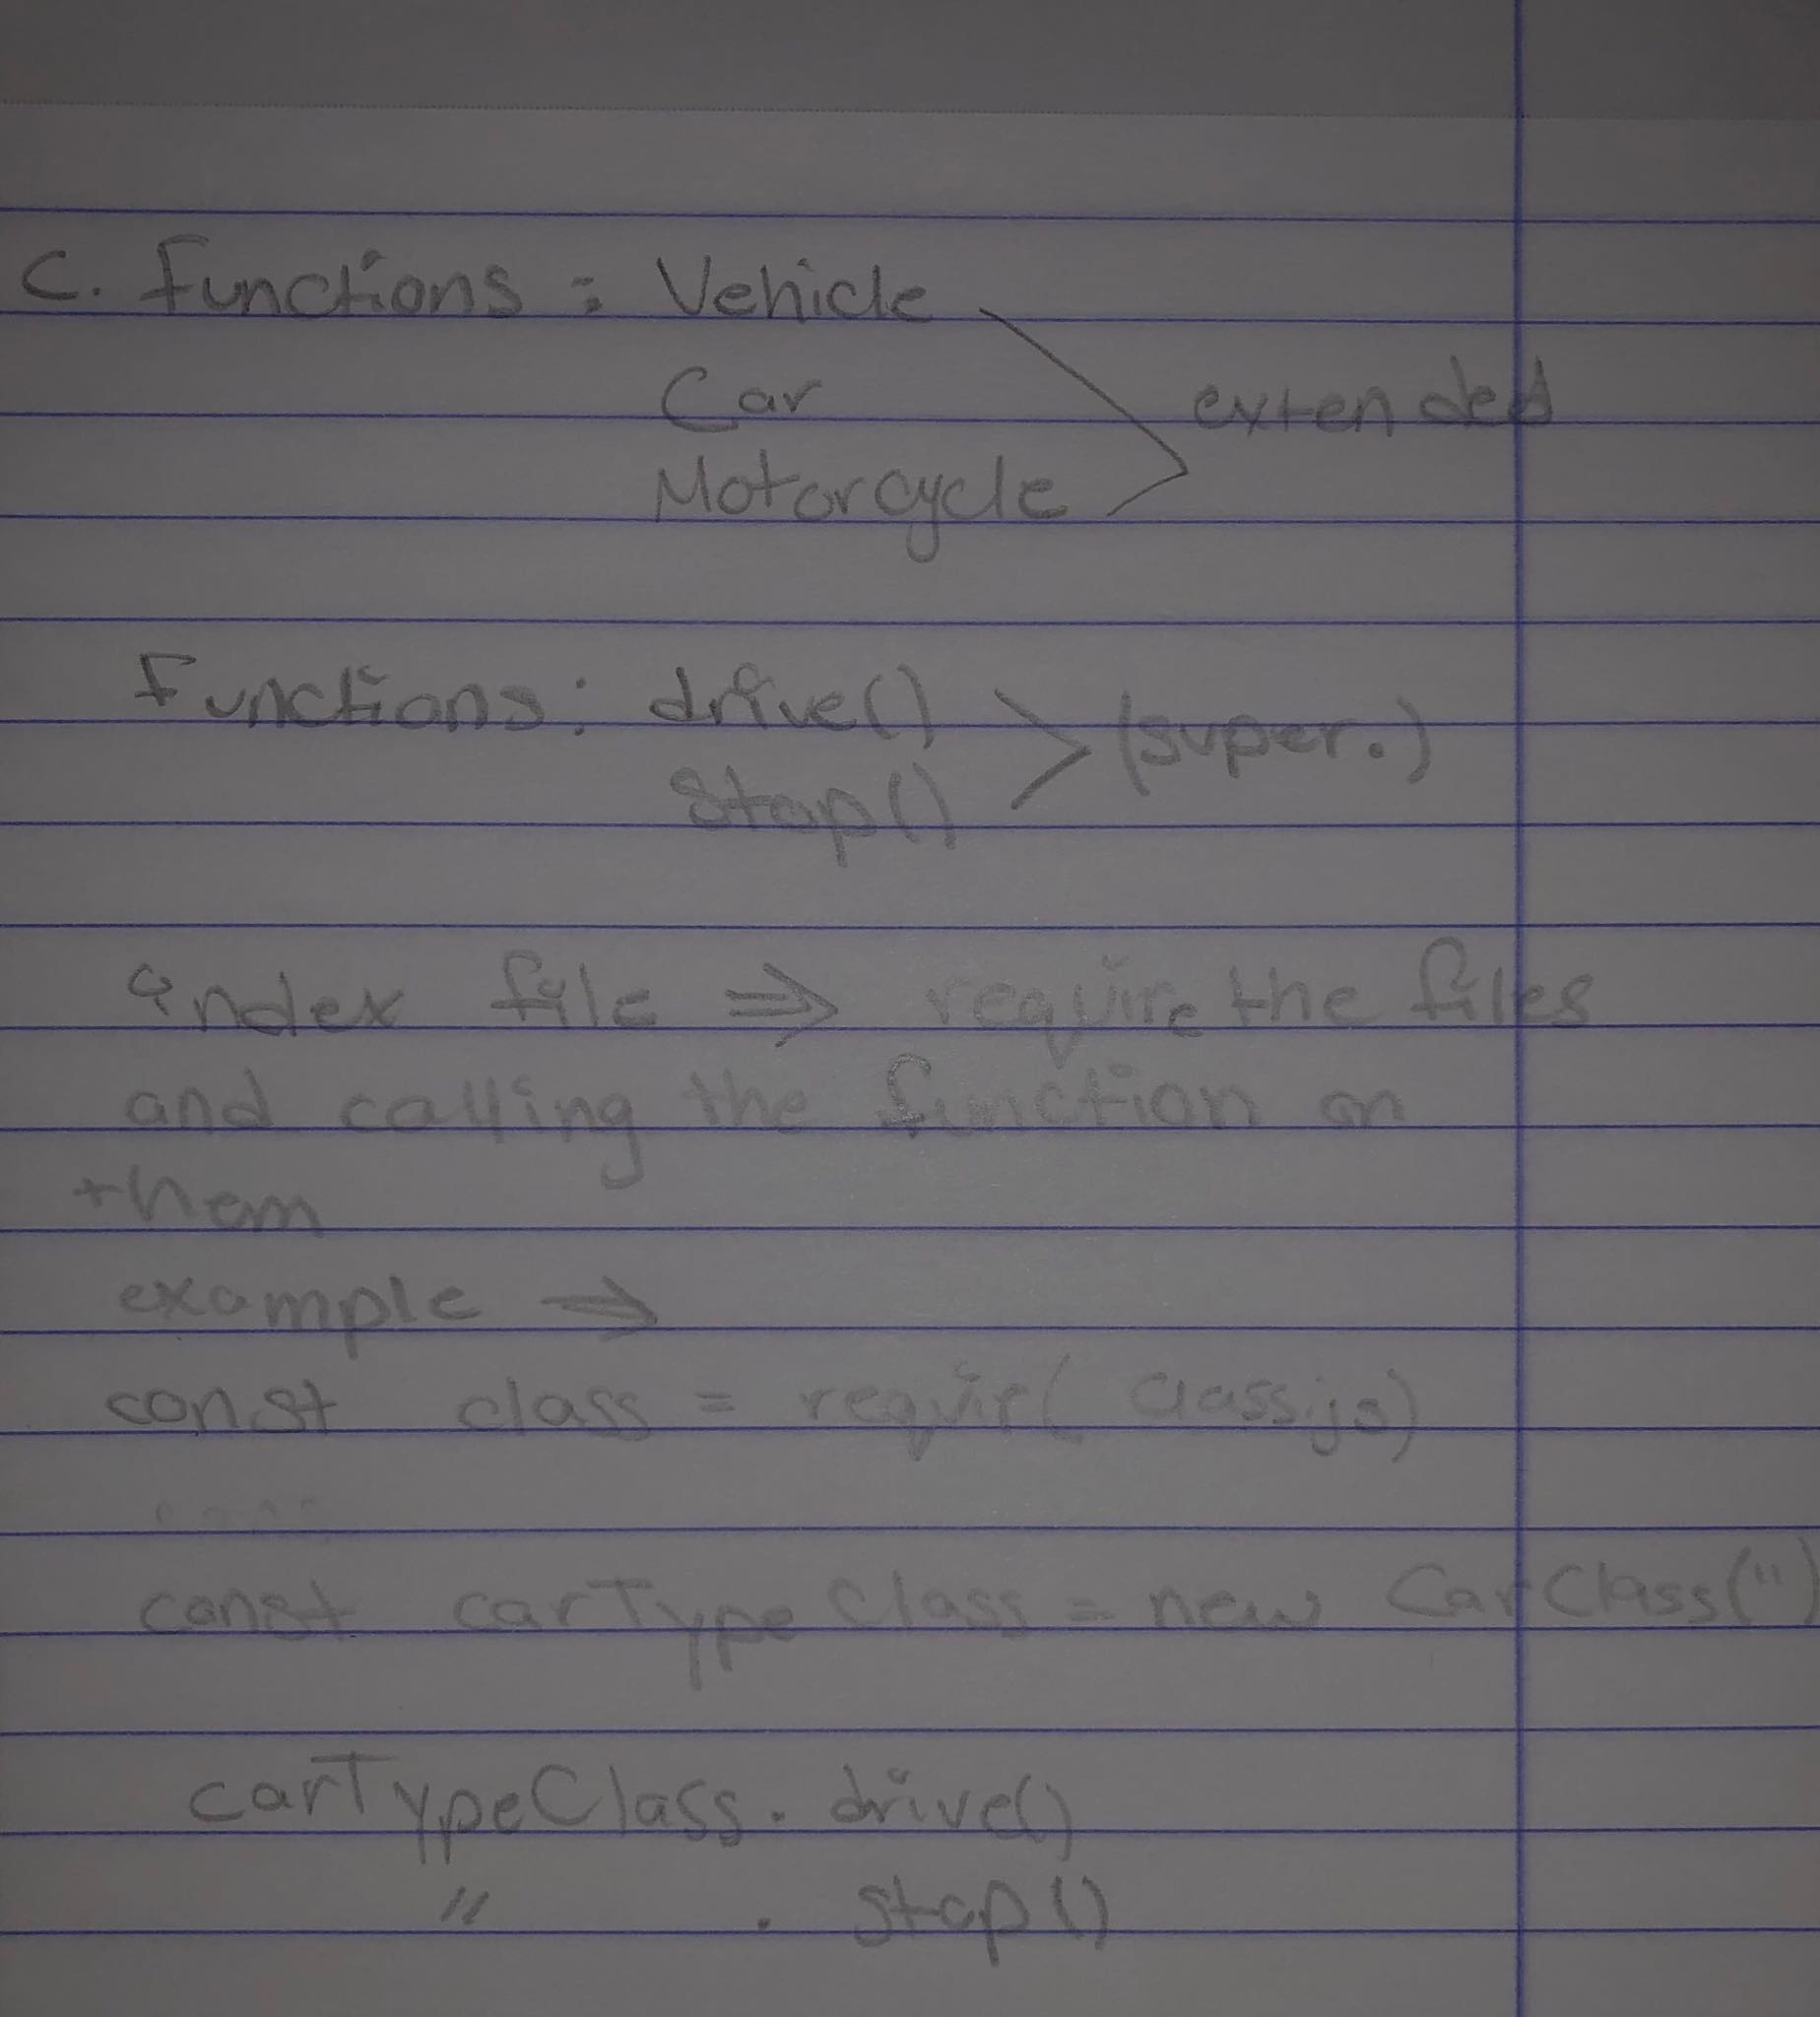 C. Functions : Vehicle
Car
extended
Motorcycle
Functions: drive()
(super.)
Stop()
index file ⇒ require the files
and calling the function on
them
example ⇒
const class = requir( class.js)
const carTypeClass = new CarClass('')
carTypeClass. drive()
" . stop()